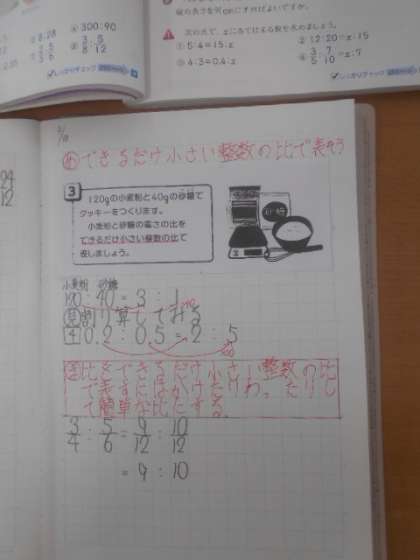 ④ 300:90
② 8:28
⑤ 3/5 : 8/12
しっかりチェック
縦の長さを何cmにすればよいですか。
次の式で、xにあてはまる数や式を求めましょう。
① 5:4=15:x
② 12:20=x:15
③ 4:3=0.4:x
④ 3/5 : 7/10 =x:7
しっかりチェック
24
12
め できるだけ小さい整数の比で表そう
3
120gの小麦粉と40gの砂糖で
クッキーをつくります。
小麦粉と砂糖の重さの比を
できるだけ小さい整数の比で
表しましょう。
小麦粉 砂糖
120:40=3:1
見 割り算してみる
4 0.2:0.5=2:5
ま 比をできるだけ小さい整数の比
で表すには
て簡単な比にする。
3/4 : 5/6 = 9/12 : 10/12
= 9:10